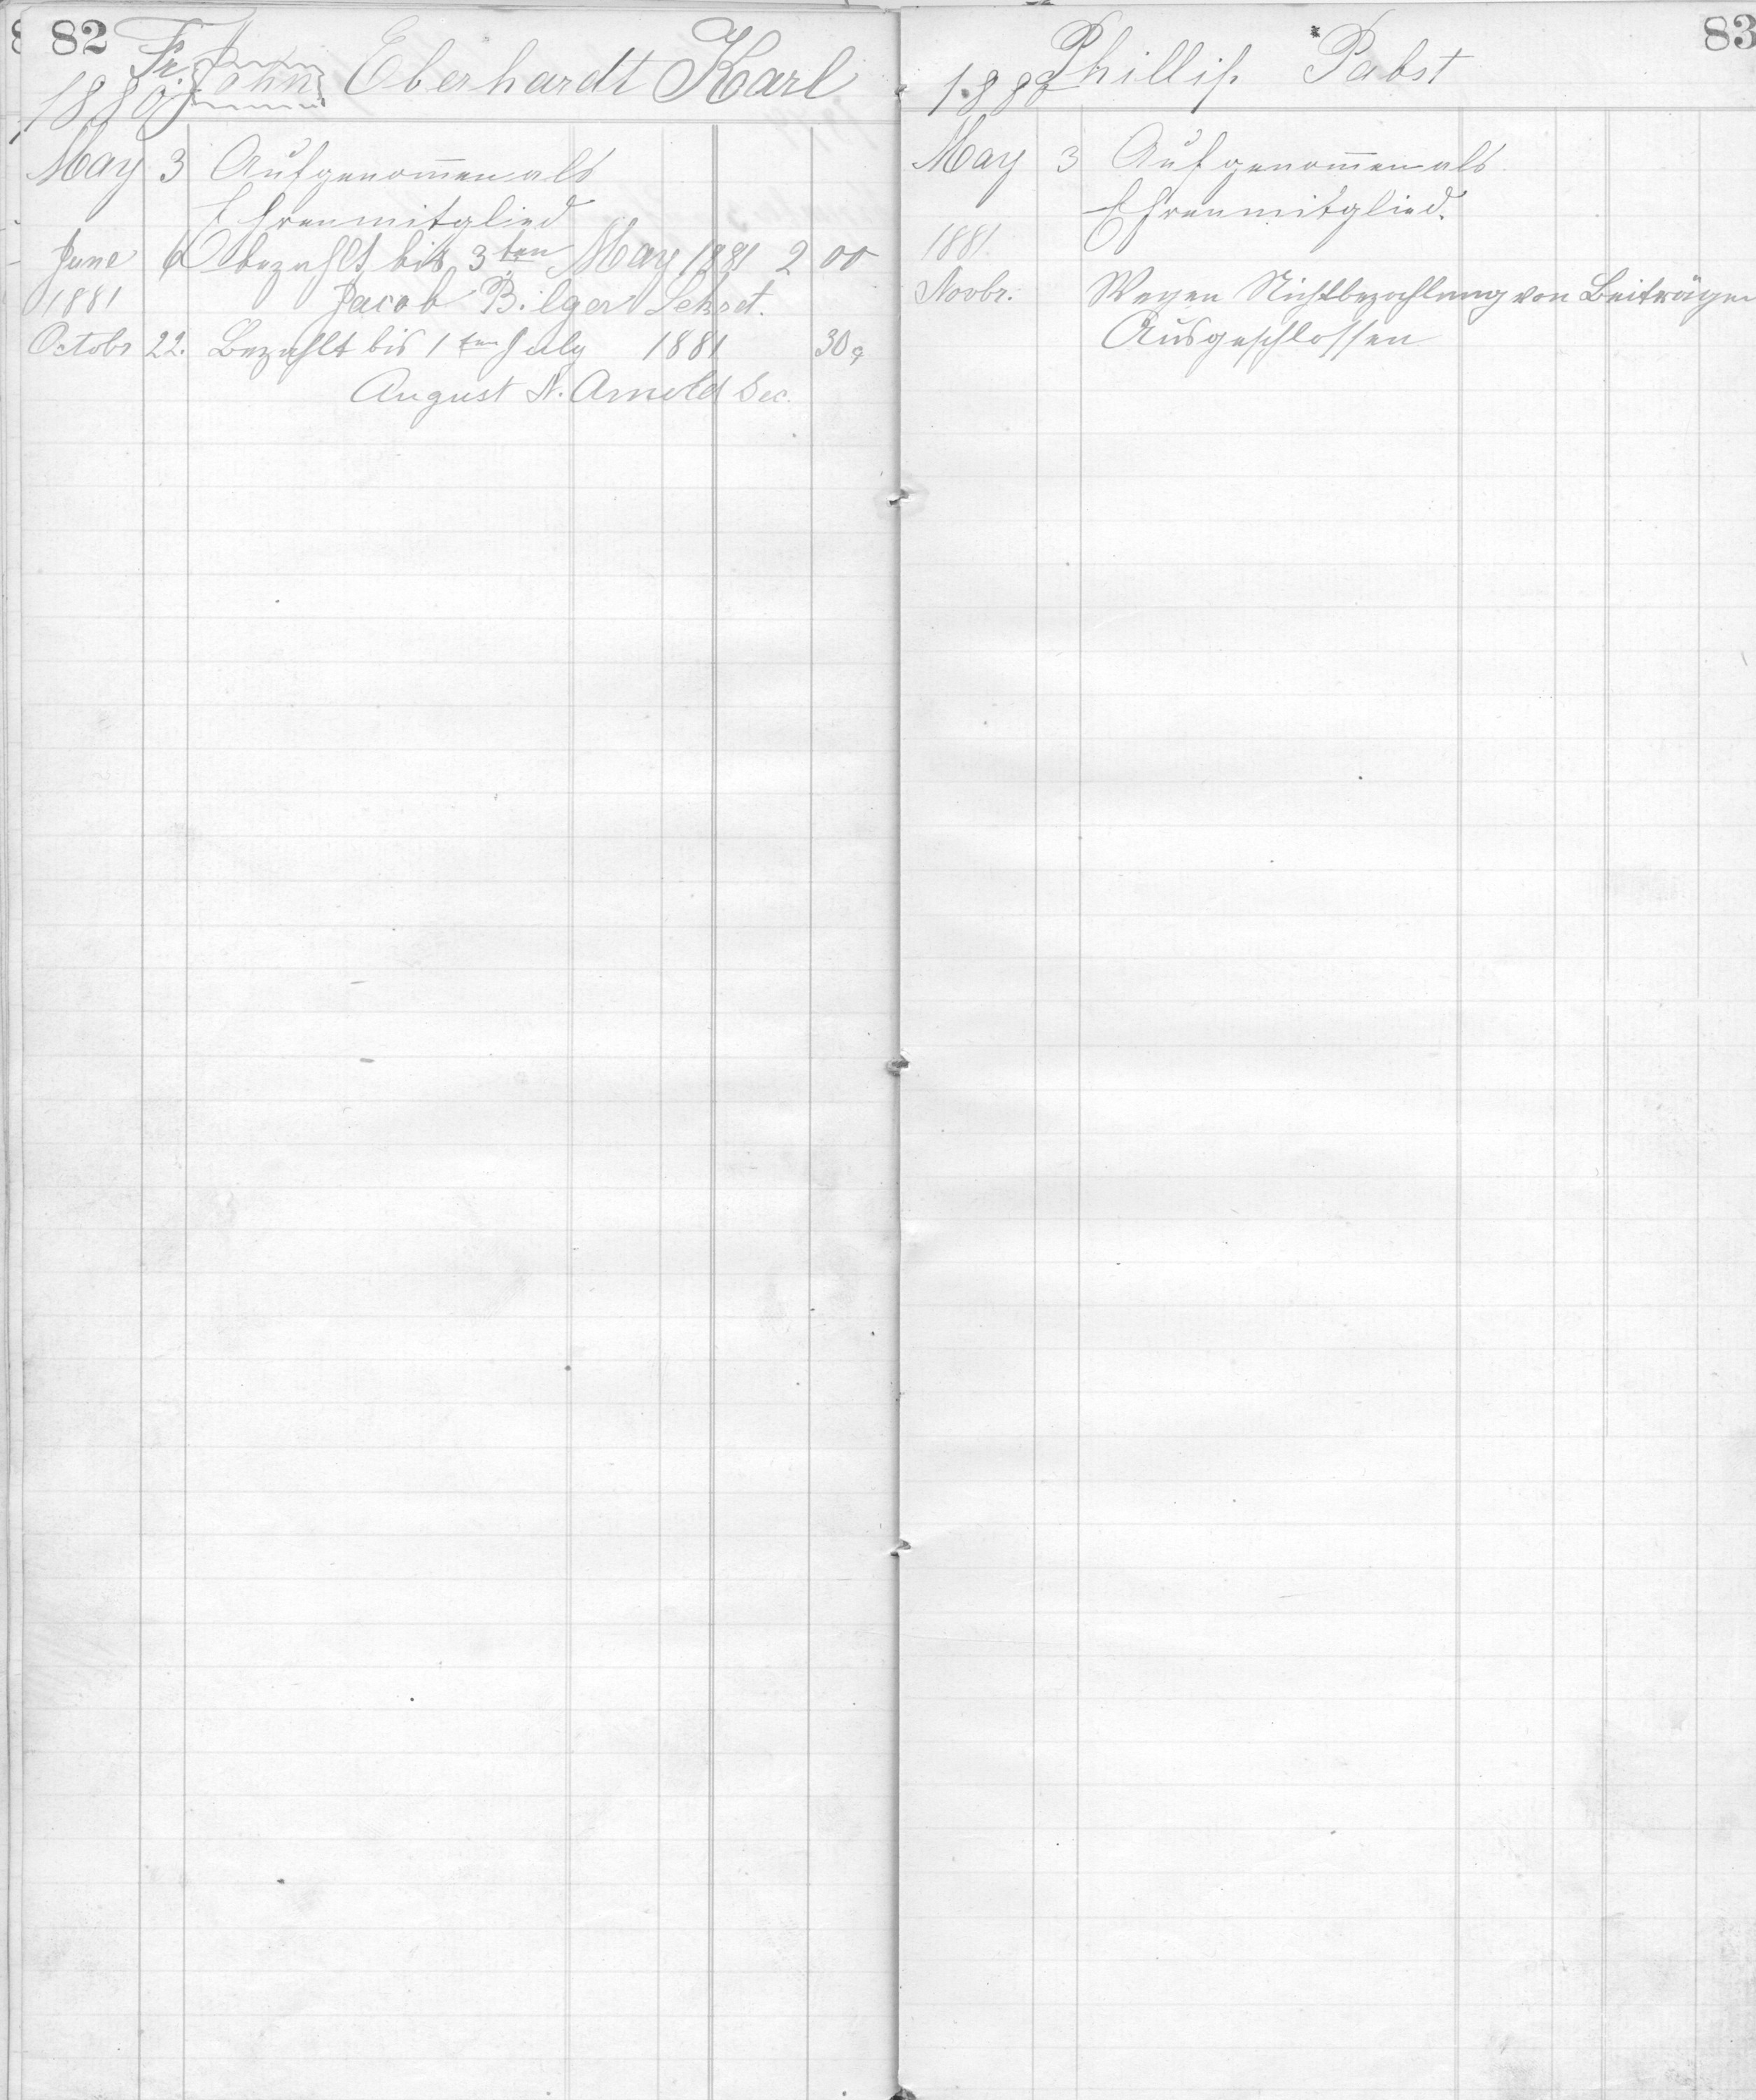 82
Fr. John Eberhardt Karl
1880
May 3 Aufgenom̅en als
Ehrenmitglied
June 6 bezahlt bis 3ten May 1881 2 00
1881 Jacob Bilger Sekret.
Octobr 22. Bezahlt bis 1ten July 1881 30¢
August N. Arnold Sec.
83
Phillip Pabst
1880
May 3 Aufgenom̅en als
Ehrenmitglied.
1881
Novbr. Wegen Nichtbezahlung von Beiträgen
Ausgeschlossen